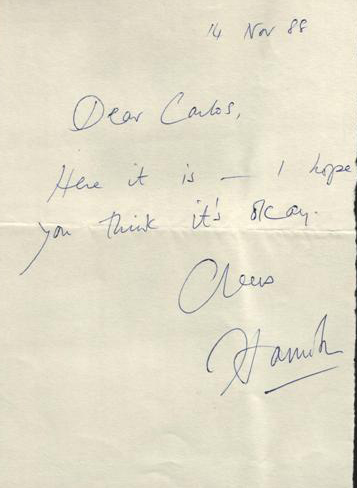 14 Nov 88
Dear Carlos,
Here it is — I hope
you think it's okay.
Cheers
Hamish